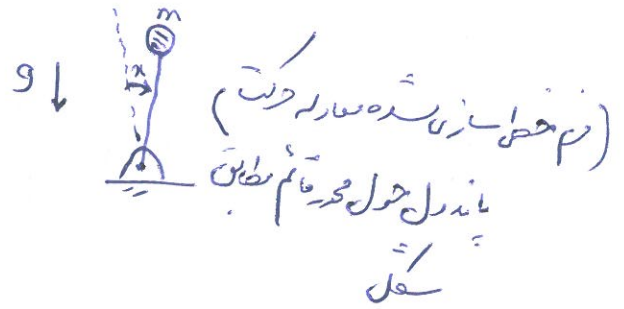 m
x
g
(فرم خطی سازی شده معادله حرکت
پاندول حول محور قائم مطابق
شکل)